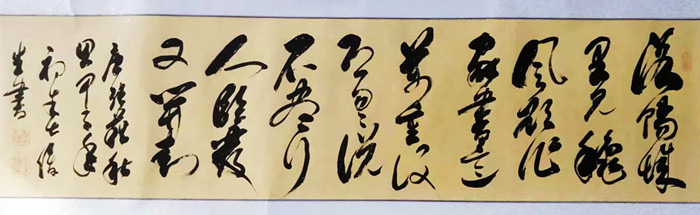 洛陽城
里见穐
风欲作
家書意
萬重復
恐匆匆说
不盡行
人臨發
又開封
唐張籍秋
思甲年
初春
生書